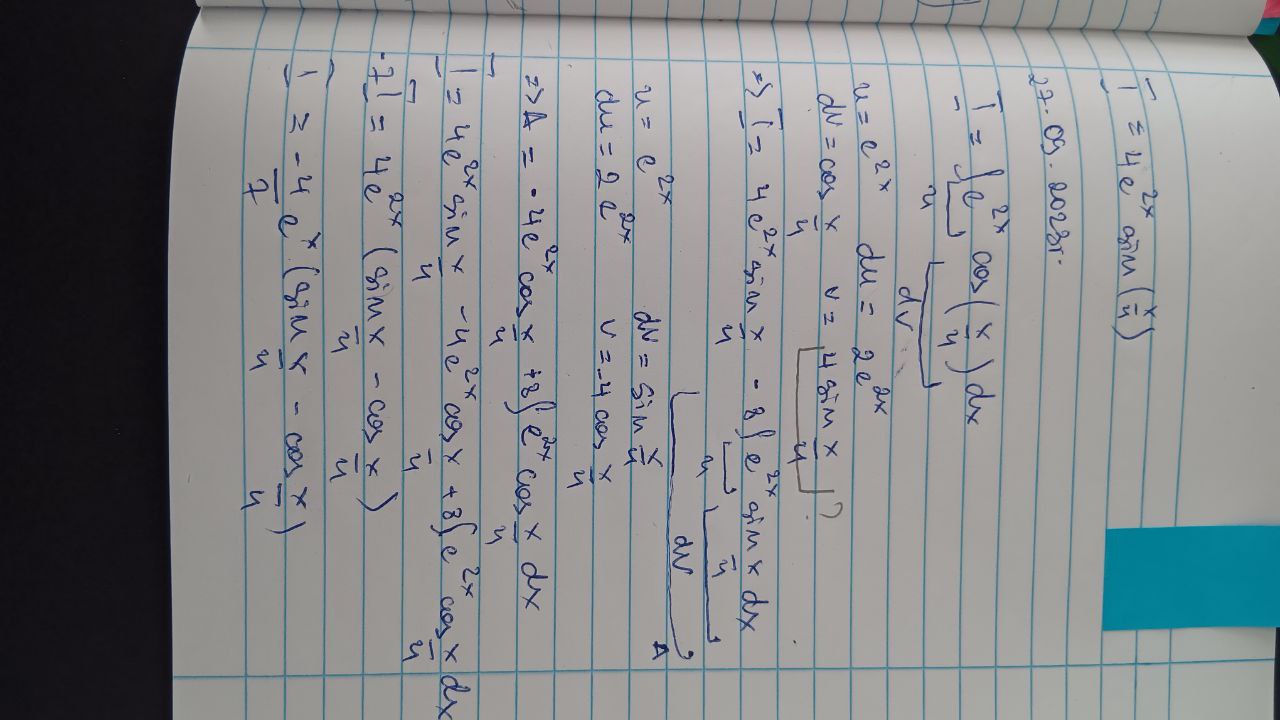 I = 4e^2x sin(x/4)
27.09.2023г.
I = ∫e^2x cos(x/4)dx
u dv
u = e^2x du = 2e^2x
dv = cos x/4 v = 4 sin x/4 ?
=> I = 4e^2x sin x/4 - 8∫e^2x sin x/4 dx
u dv A
u = e^2x dv = sin x/4
du = 2e^2x v = -4 cos x/4
=> A = -4e^2x cos x/4 + 8∫e^2x cos x/4 dx
I = 4e^2x sin x/4 - 4e^2x cos x/4 + 8∫e^2x cos x/4 dx
-7I = 4e^2x (sin x/4 - cos x/4)
I = -4/7 e^x (sin x/4 - cos x/4)